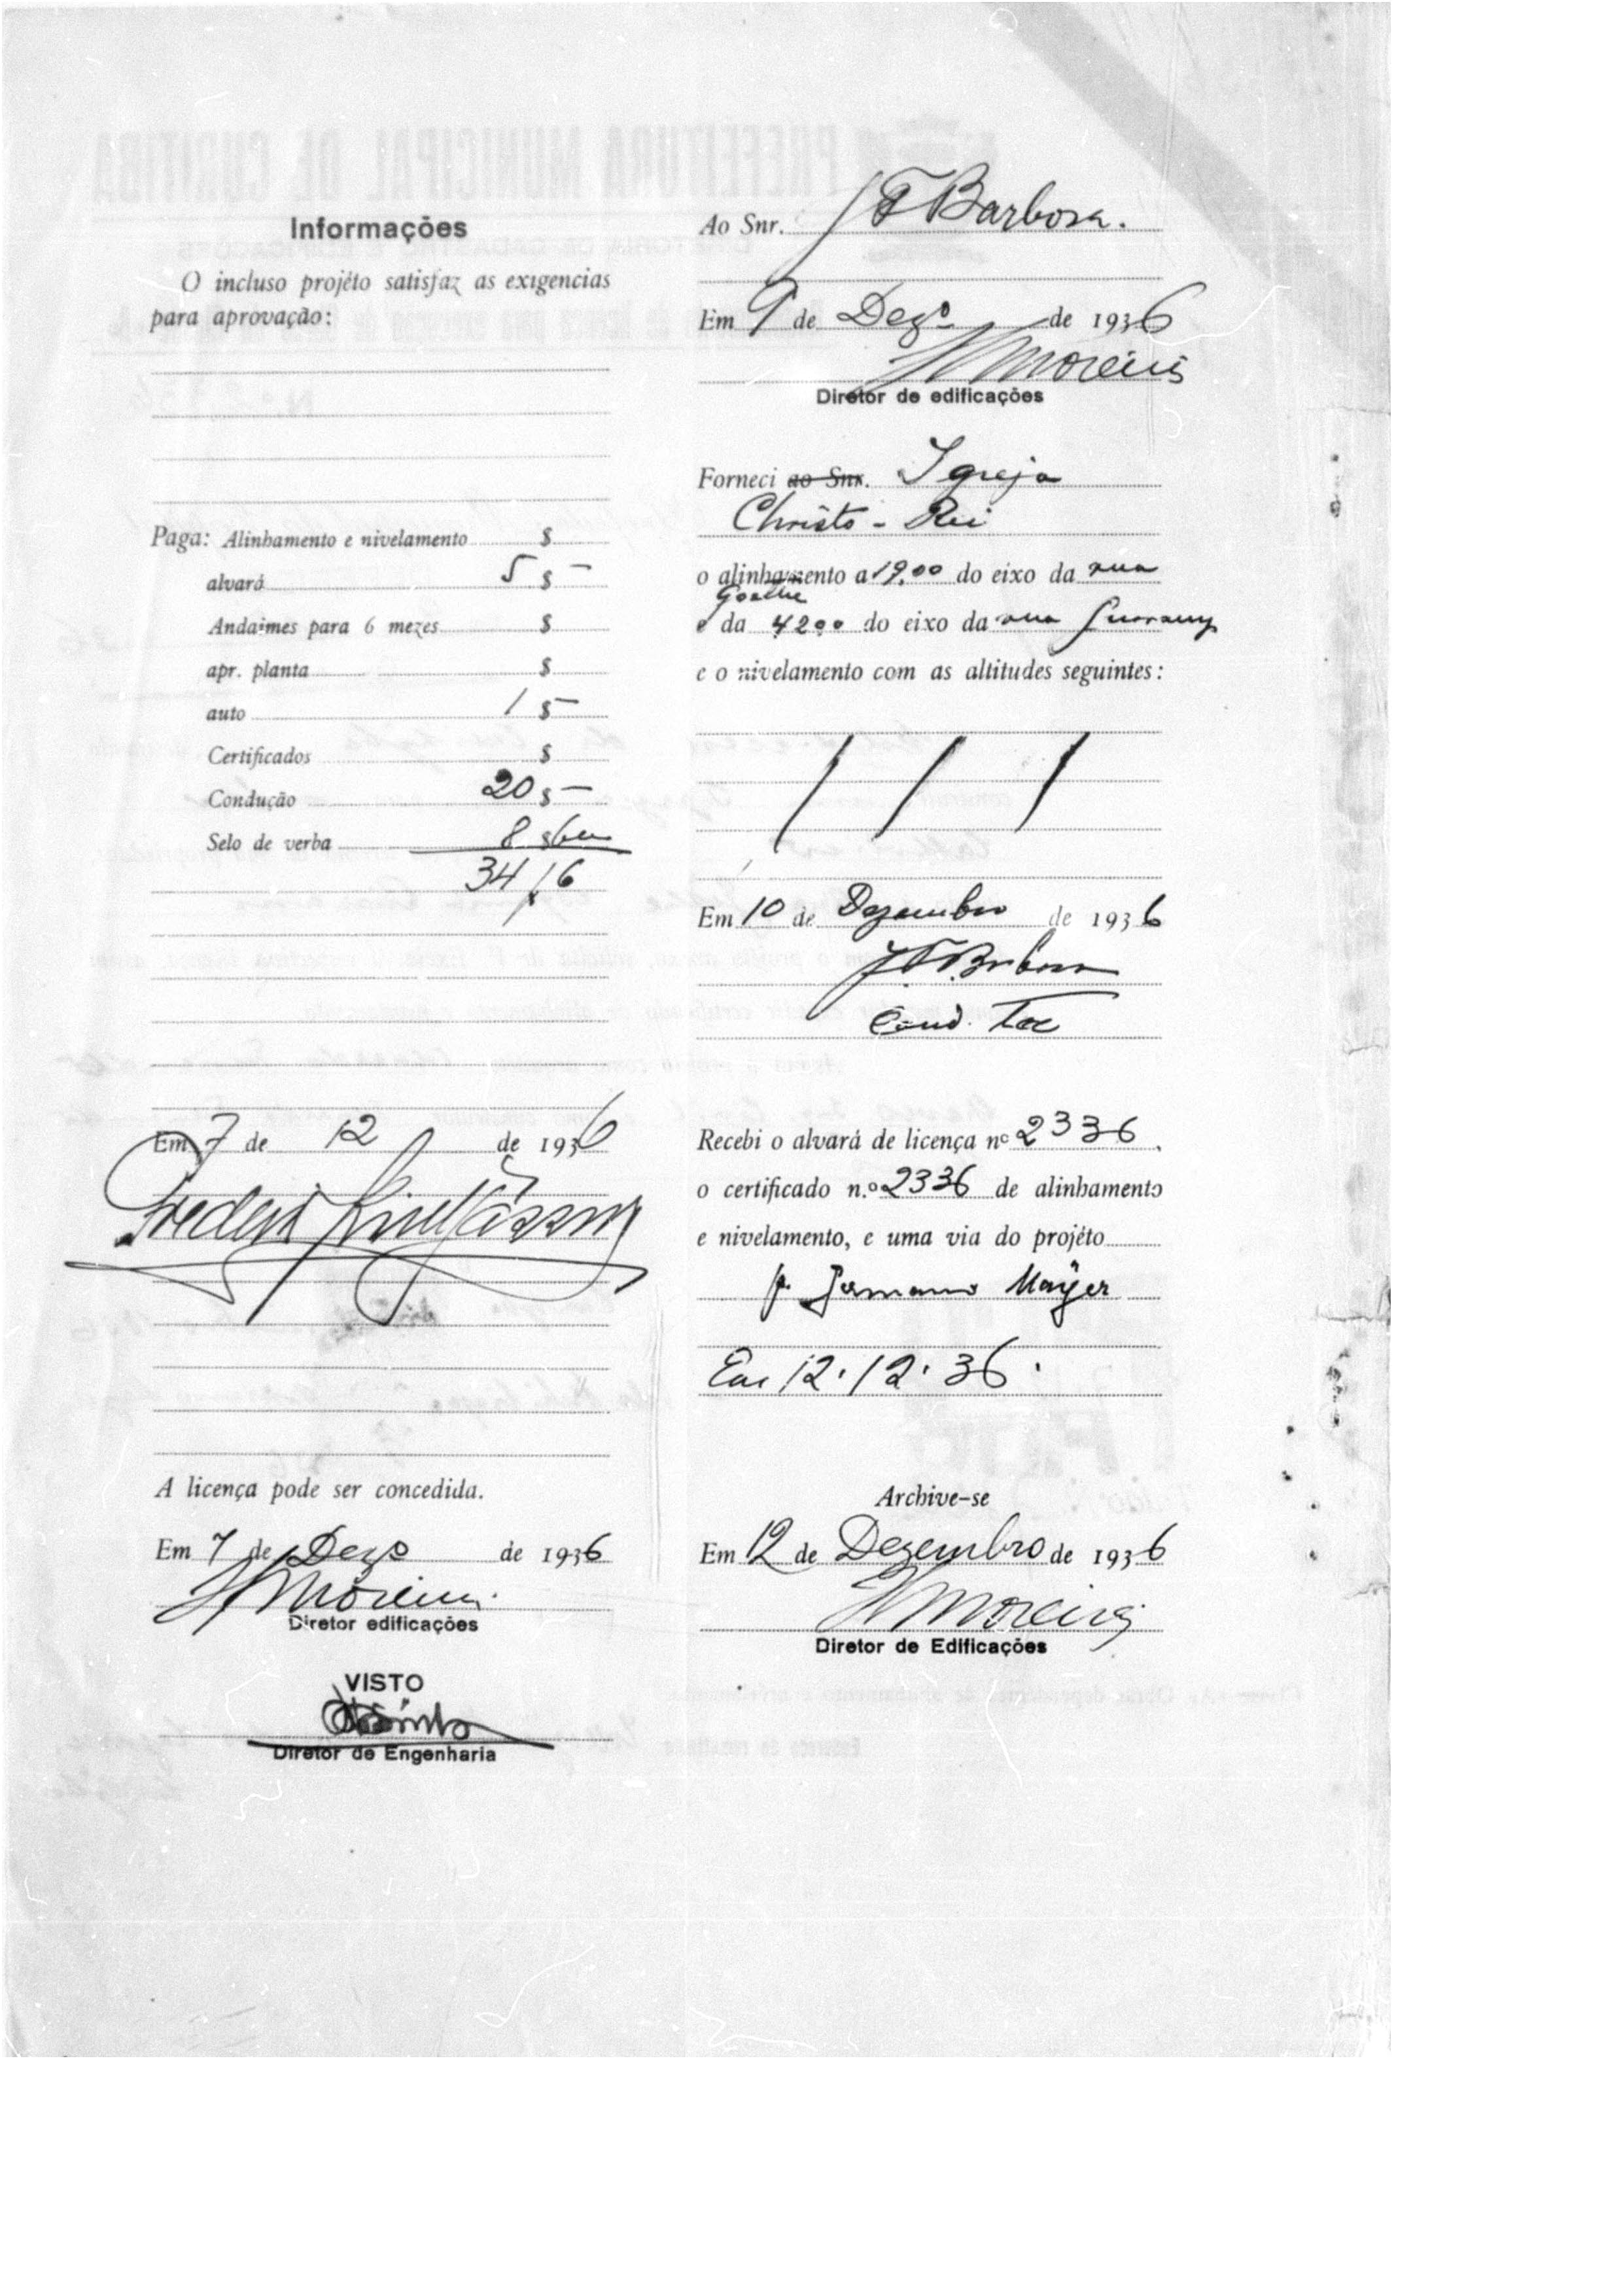 Informações
O incluso projéto satisfaz as exigencias
para aprovação:
Paga: Alinhamento e nivelamento $
alvará 5 $ —
Andaimes para 6 mezes $
apr. planta $
auto 1 $ —
Certificados $
Condução 20 $ —
Selo de verba 8 $600
34 $ 6
Em 7 de 12 de 1936
A licença pode ser concedida.
Em 7 de Dezo de 1936
Moreira
Diretor edificações
VISTO
Diretor de Engenharia
Ao Snr. J F Barbosa.
Em 9 de Dezo de 1936
Moreira
Diretor de edificações
Forneci ao Snr. Igreja
Christo - Rei
o alinhamento a 19,00 do eixo da rua
Goethe
e da 4200 do eixo da rua Guarany
e o nivelamento com as altitudes seguintes:
/ / /
Em 10 de Dezembro de 1936
J F Barbosa
Cond. Tec
Recebi o alvará de licença nº 2336.
o certificado n.º 2336 de alinhamento
e nivelamento, e uma via do projéto
p. Germano Mayer
Em 12.12.36.
Archive-se
Em 12 de Dezembro de 1936
Moreira
Diretor de Edificações